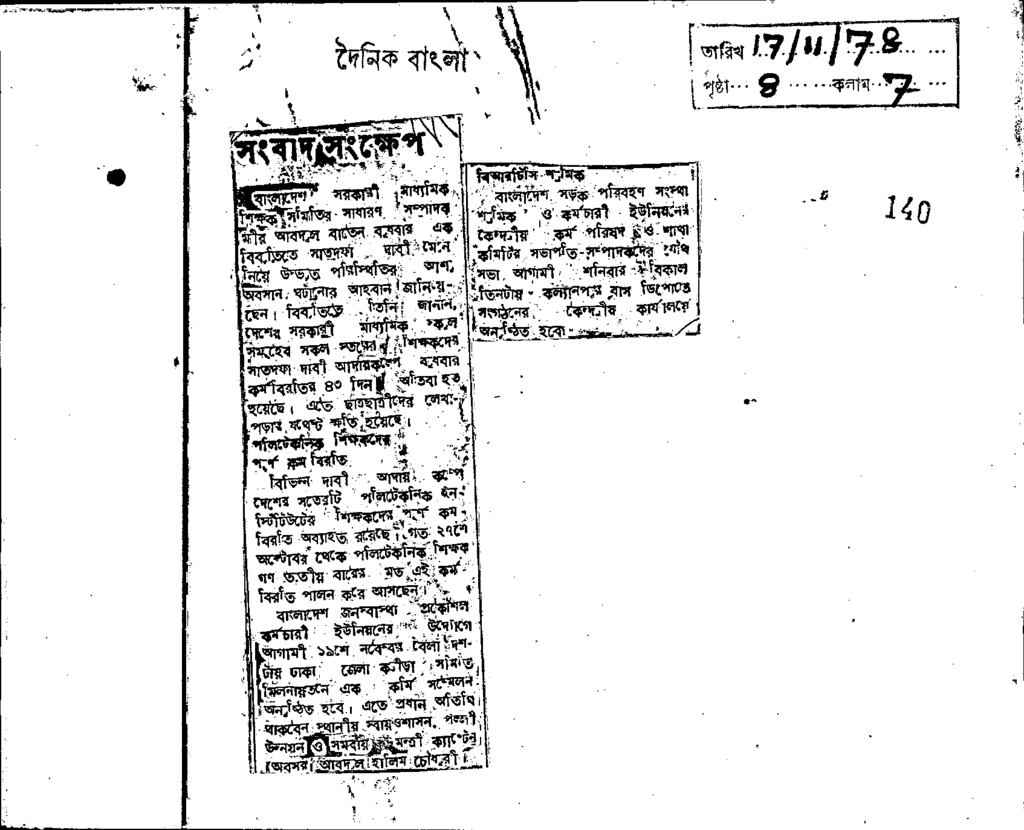 দৈনিক বাংলা
তারিখ 17/11/78
পৃষ্ঠা 8 কলাম 7
140
সংবাদ সংক্ষেপ
বাংলাদেশ সরকারী মাধ্যমিক
শিক্ষক সমিতির সাধারণ সম্পাদক
মীর আবদুল বাতেন বুধবার এক
বিবৃতিতে সাতদফা দাবী মেনে
নিয়ে উদ্ভূত পরিস্থিতির আশু
অবসান ঘটানোর আহবান জানিয়ে-
ছেন। বিবৃতিতে তিনি জানান,
দেশের সরকারী মাধ্যমিক স্কুল
সমূহের সকল স্তরের শিক্ষকদের
সাতদফা দাবী আদায়কল্পে বুধবার
কর্মবিরতির ৪৩ দিন অতিবাহিত
হয়েছে। এতে ছাত্রছাত্রীদের লেখা-
পড়ার যথেষ্ট ক্ষতি হয়েছে।
পলিটেকনিক শিক্ষকদের
পূর্ণ কর্ম বিরতি
বিভিন্ন দাবী আদায় কল্পে
দেশের সতেরটি পলিটেকনিক ইন-
স্টিটিউটের শিক্ষকদের পূর্ণ কর্ম-
বিরতি অব্যাহত রয়েছে। গত ২৭শে
অক্টোবর থেকে পলিটেকনিক শিক্ষক
গণ তৃতীয় বারের মত এই কর্ম
বিরতি পালন করে আসছেন।
বাংলাদেশ জনস্বাস্থ্য প্রকৌশল
কর্মচারী ইউনিয়নের উদ্যোগে
আগামী ১৯শে নবেম্বর বেলা দশ-
টায় ঢাকা জেলা ক্রীড়া সমিতি
মিলনায়তনে এক কর্মি সম্মেলন
অনুষ্ঠিত হবে। এতে প্রধান অতিথি
থাকবেন স্থানীয় স্বায়ত্তশাসন, পল্লী
উন্নয়ন ও সমবায় মন্ত্রী ক্যাপ্টেন
(অবসর) আবদুল হালিম চৌধুরী।
বিআরটিসি শ্রমিক
বাংলাদেশ সড়ক পরিবহণ সংস্থা
শ্রমিক ও কর্মচারী ইউনিয়নের
কেন্দ্রীয় কর্ম পরিষদ ও শাখা
কমিটির সভাপতি-সম্পাদকদের যৌথ
সভা আগামী শনিবার বিকাল
তিনটায় কল্যানপুর বাস ডিপোতে
সংগঠনের কেন্দ্রীয় কার্যালয়ে
অনুষ্ঠিত হবে।